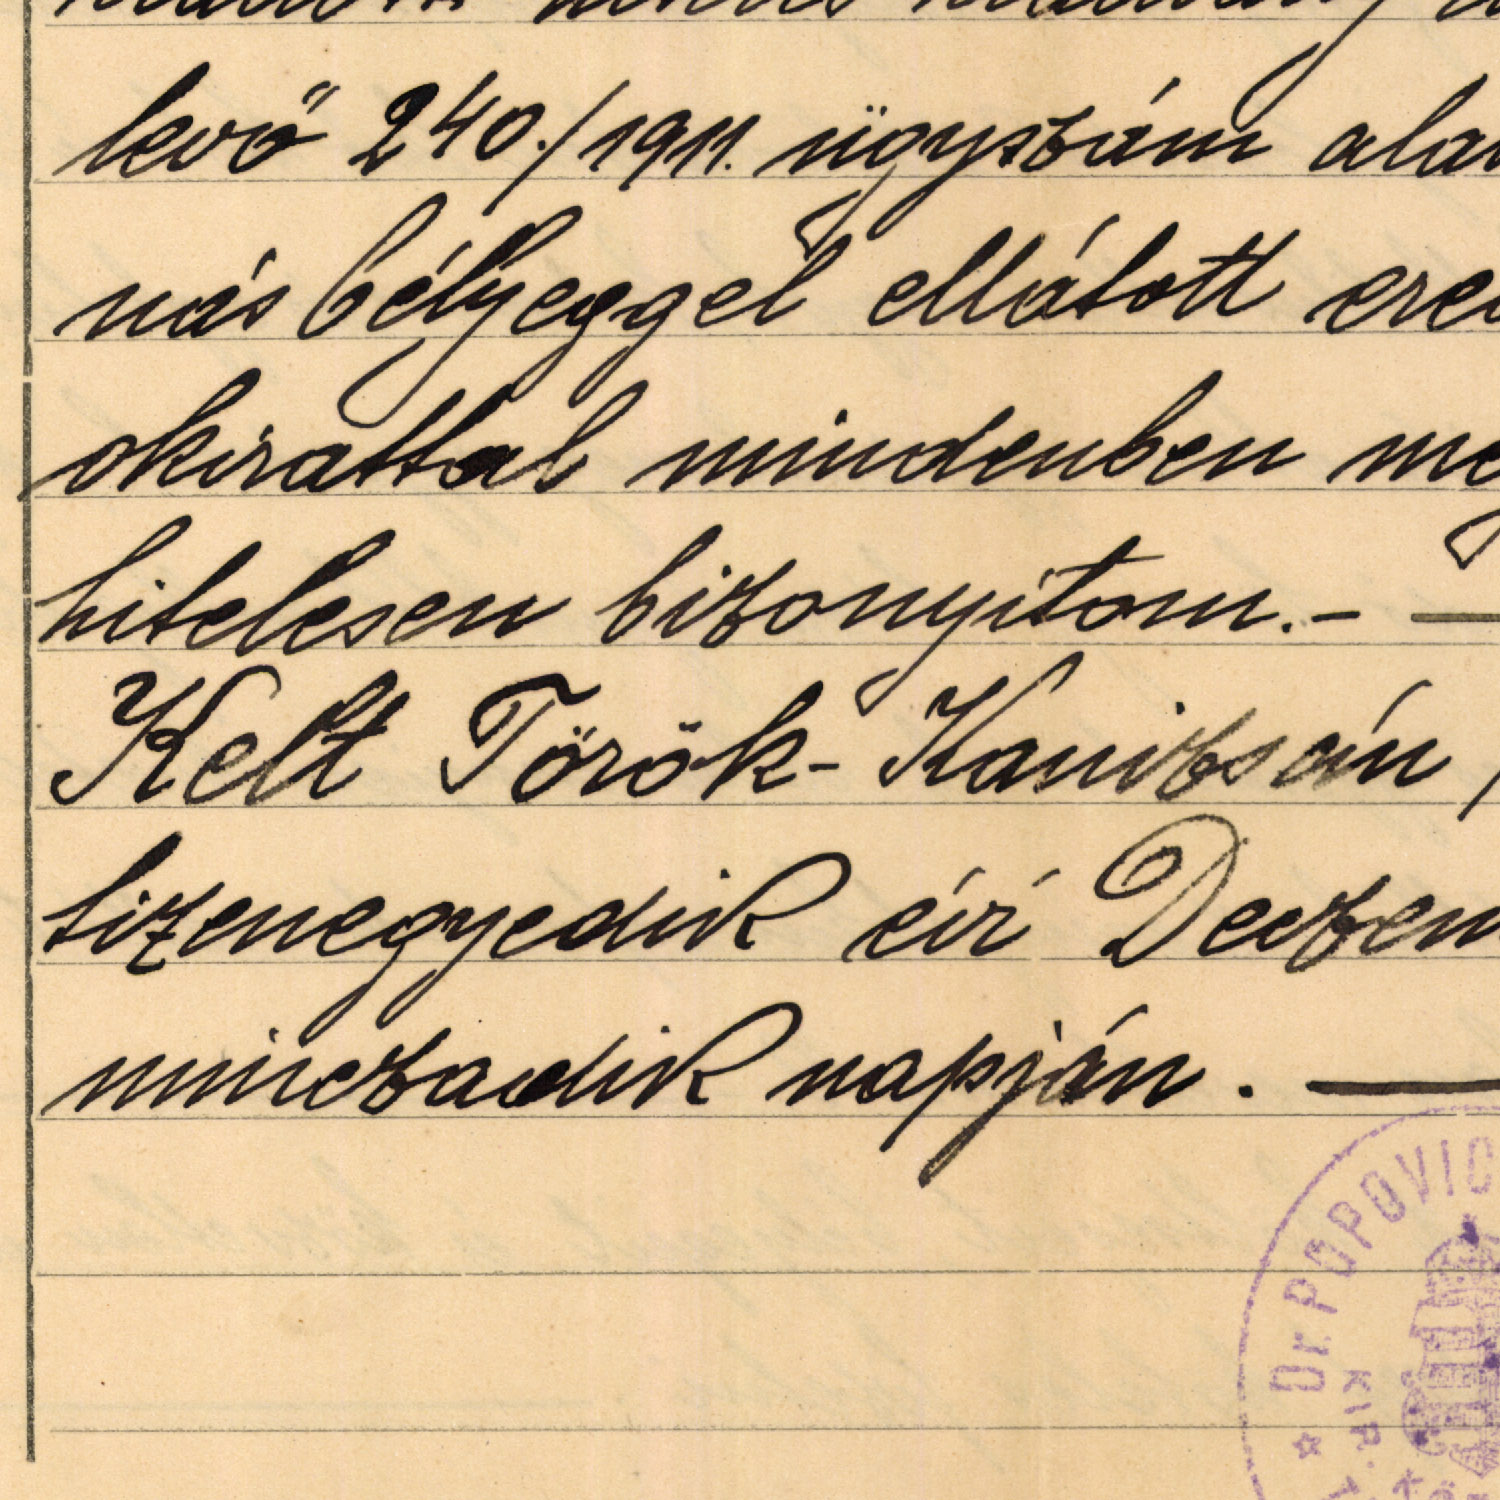 levő 240./1911. ügyszám alat
nás bélyeggel ellátott ere
okirattal mindenben me
hitelesen bizonyítom.- —
Kelt Török-Kanizsán,
tizenegyedik évi Deczem
minczadik napján. —
Dr. POPOVIC
KIR. KÖZ